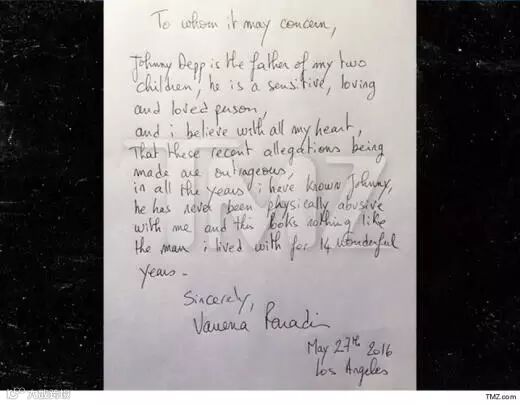 To whom it may concern,
Johnny Depp is the father of my two
children, he is a sensitive, loving
and loved person,
and i believe with all my heart,
That these recent allegations being
made are outrageous,
in all the years i have known Johnny,
he has never been physically abusive
with me and this looks nothing like
the man i lived with for 14 wonderful
years -
Sincerely,
Vanessa Paradis
May 27th 2016
Los Angeles
TMZ
TMZ.com